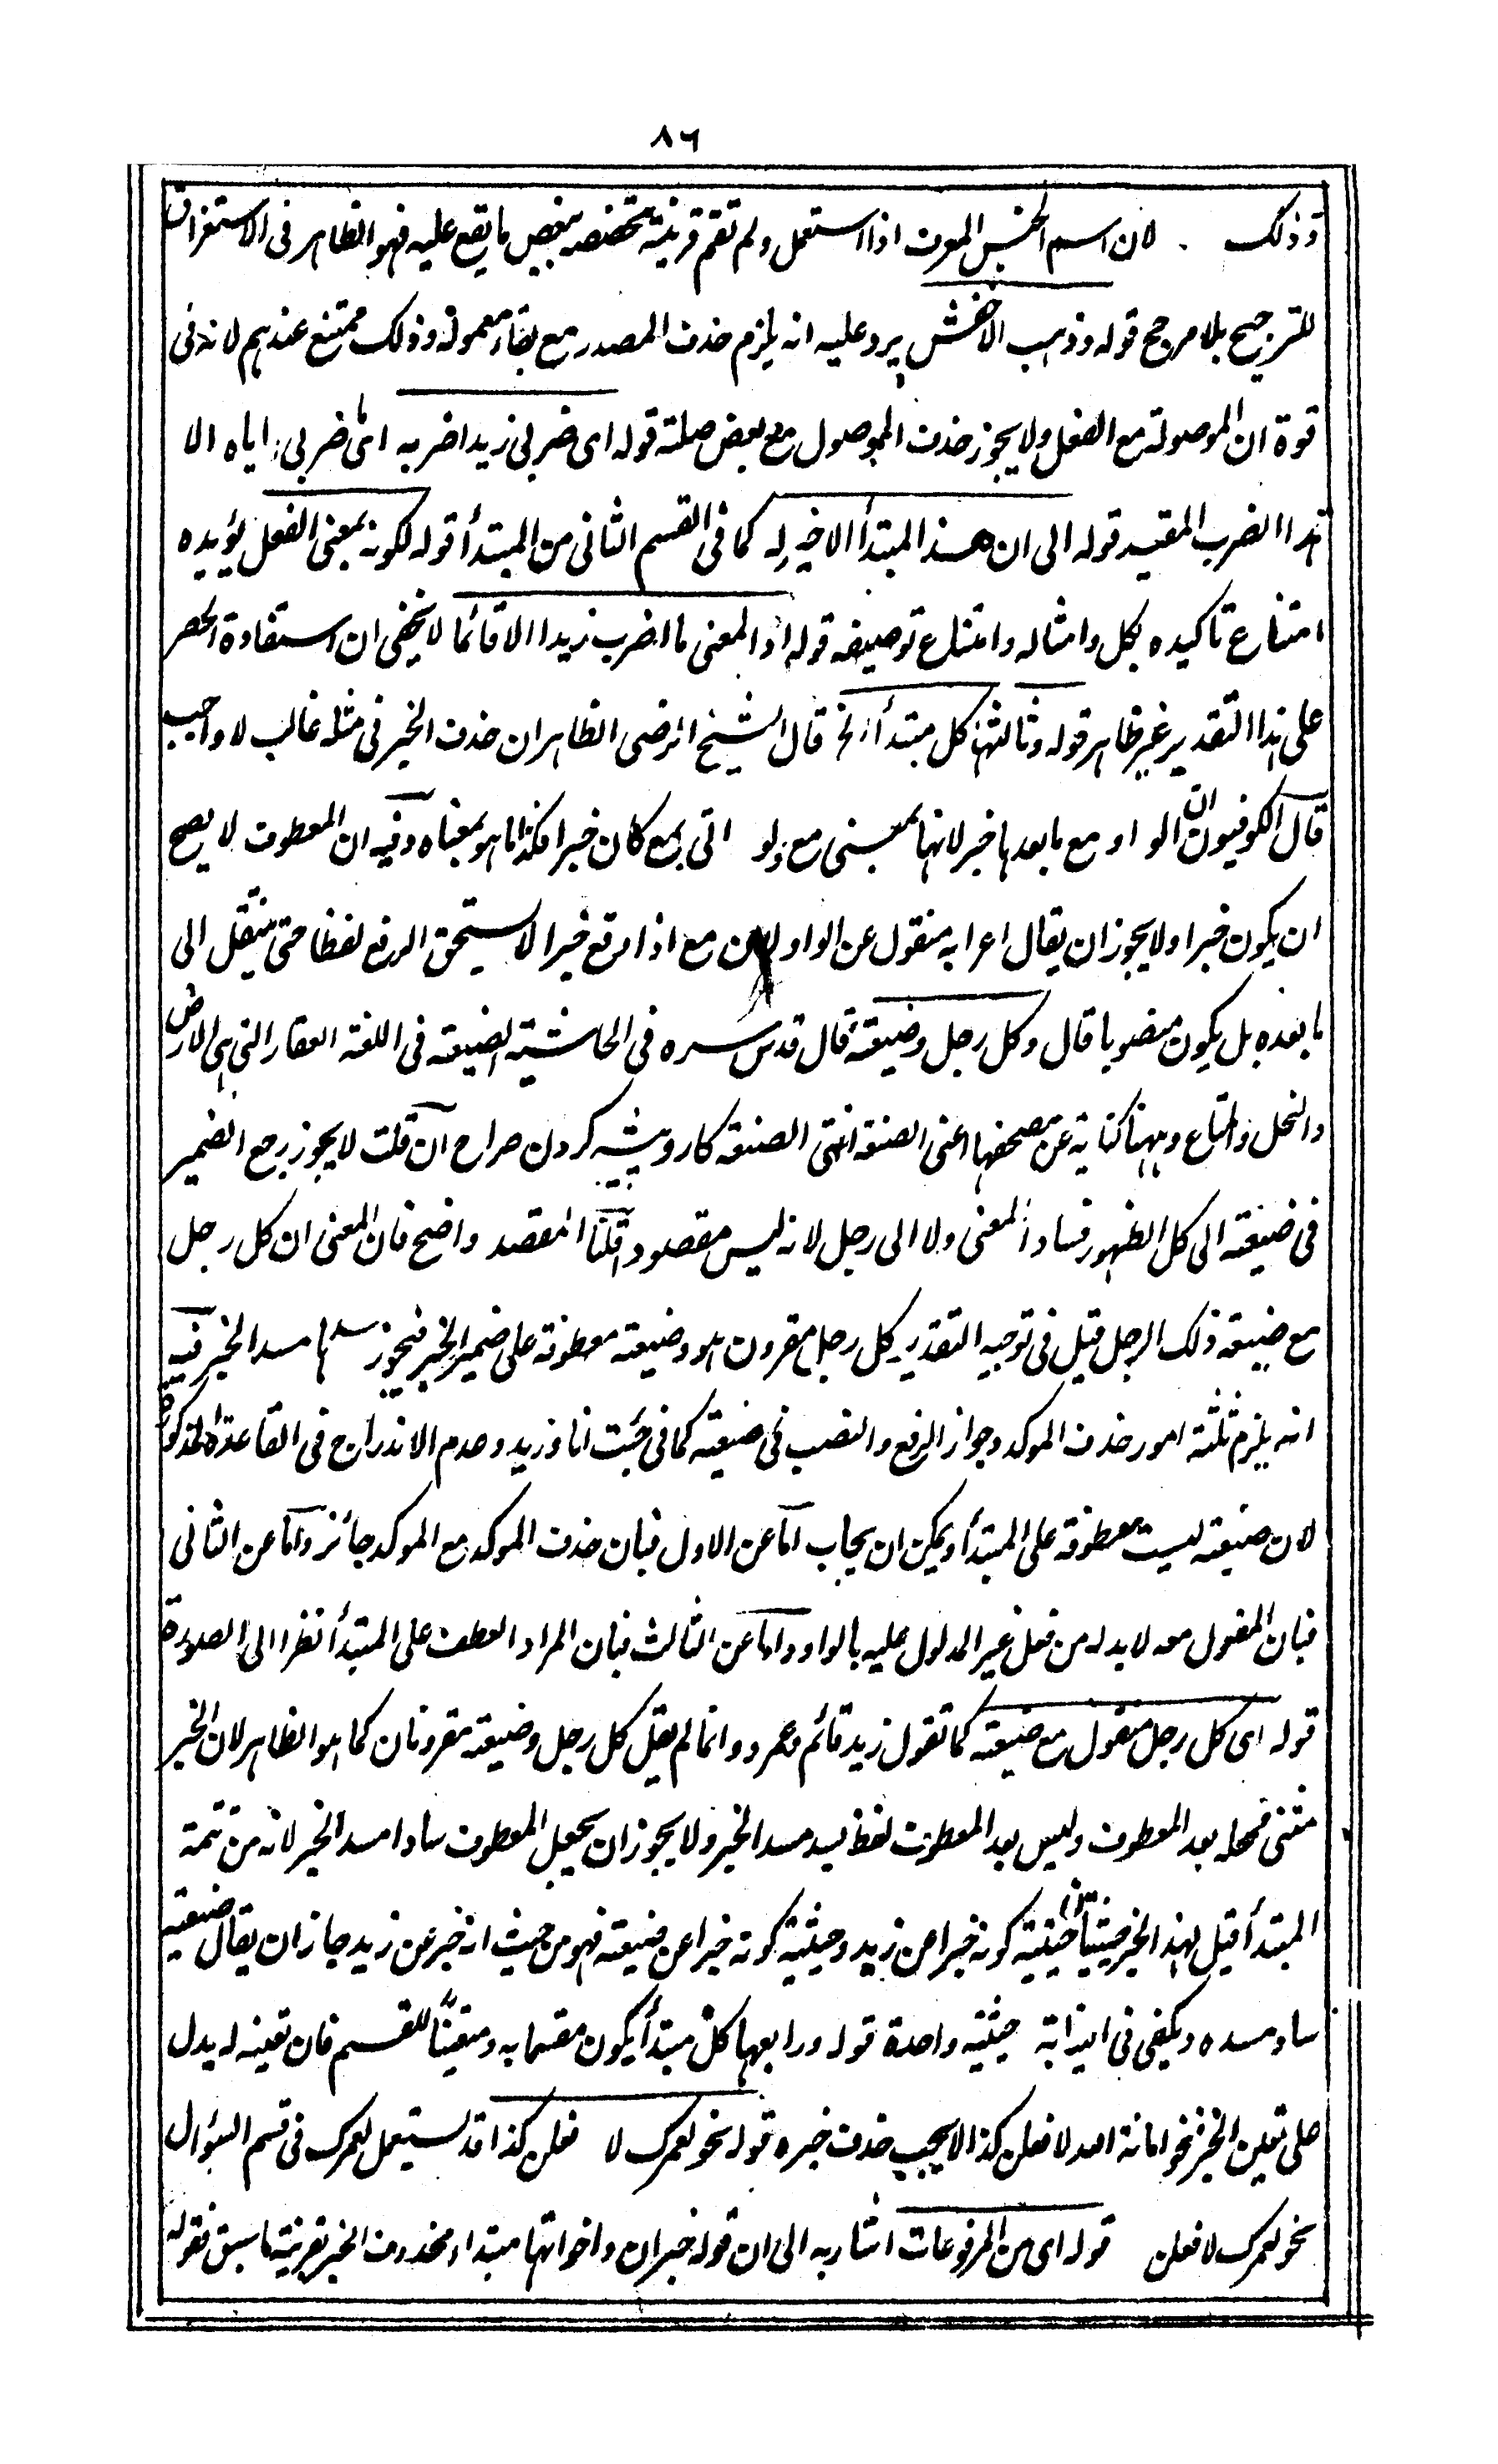 ٨٦
وذلك لان اسم الجنس المعرف اذا استعمل ولم تقم قرينة تخصصه ببعض ما يقع عليه فهو الظاهر فى الاستغراق
للترجيح بلا مرجح قوله وذهب الاخفش يرد عليه انه يلزم حذف المصدر مع بقاء معموله وذلك ممتنع عندهم لانه فى
قوة ان الموصولة مع الفعل ولا يجوز حذف الموصول مع بعض صلته قوله اى ضربى زيدا ضربه اى ضربى اياه الا
هذا الضرب المقيد قوله الى ان هذا المبتدأ لا خبر له كما فى القسم الثانى من المبتدأ قوله لكونه بمعنى الفعل يؤيده
امتناع تاكيده بكل وامثاله وامتناع توصيفه قوله اذ المعنى ما اضرب زيدا الا قائما لا يخفى ان استفادة الحصر
على هذا التقدير غير ظاهر قوله وثالثها كل مبتدأ الخ قال الشيخ الرضى الظاهر ان حذف الخبر فى مثله غالب لا واجب
قال الكوفيون ان الواو مع ما بعدها خبر لانها بمعنى مع ولو اتى بمع كان خبرا فكذا ما هو بمعناه وفيه ان المعطوف لا يصح
ان يكون خبرا ولا يجوز ان يقال اعرابه منقول عن الواو لان مع اذا وقع خبرا لا يستحق الرفع لفظا حتى ينتقل الى
ما بعده بل يكون منصوبا قال وكل رجل وضيعته قال قدس سره فى الحاشية الضيعة فى اللغة العقار التى هى الارض
والنخل والمتاع وههنا كناية عن مصحفها اعنى الصنعة انتهى الصنعة كار وپيشه كردن صراح ان قلت لا يجوز رجع الضمير
فى ضيعته الى كل لظهور فساد المعنى ولا الى رجل لانه ليس مقصودا قلنا المقصد واضح فان المعنى ان كل رجل
مع ضيعة ذلك الرجل قيل فى توجيه التقدير كل رجل مقرون هو وضيعته معطوفة على ضمير الخبر فيجوز سدها مسد الخبر فيه
انه يلزم ثلثة امور حذف الموكد وجواز الرفع والنصب فى ضيعته كما فى جئت انا وزيد وعدم الاندراج فى القاعدة المذكورة
لان ضيعته ليست معطوفة على المبتدأ ويمكن ان يجاب اما عن الاول فبان حذف الموكد مع الموكد جائز واما عن الثانى
فبان المفعول معه لا بد له من فعل غير المدلول عليه بالواو واما عن الثالث فبان المراد العطف على المبتدأ نظرا الى الصورة
قوله اى كل رجل مقرون مع ضيعته كما تقول زيد قائم وعمرو وانما لم يقل كل رجل وضيعته مقرونان كما هو الظاهر لان الخبر
مثنى فمحله بعد المعطوف وليس بعد المعطوف لفظ يسد مسد الخبر ولا يجوز ان يجعل المعطوف سادا مسد الخبر لانه من تتمة
المبتدأ قيل لهذا الخبر حيثيتان حيثية كونه خبرا عن زيد وحيثية كونه خبرا عن ضيعته فهو من حيث انه خبر عن زيد جاز ان يقال ضيعته
ساد مسده ويكفى فى حيثية واحدة قوله ورابعها كل مبتدأ يكون مقسما به ومتعينا للقسم فان تعينه له يدل
على تعين الخبر نحو امانة الله لافعلن كذا لا يجب حذف خبره قوله نحو لعمرك لا فعلن كذا قد يستعمل لعمرك فى قسم السؤال
نحو لعمرك لا فعلن قوله اى من المرفوعات اشار به الى ان قوله خبر ان واخواتها مبتدا محذوف الخبر بقرينة ما سبق فقوله